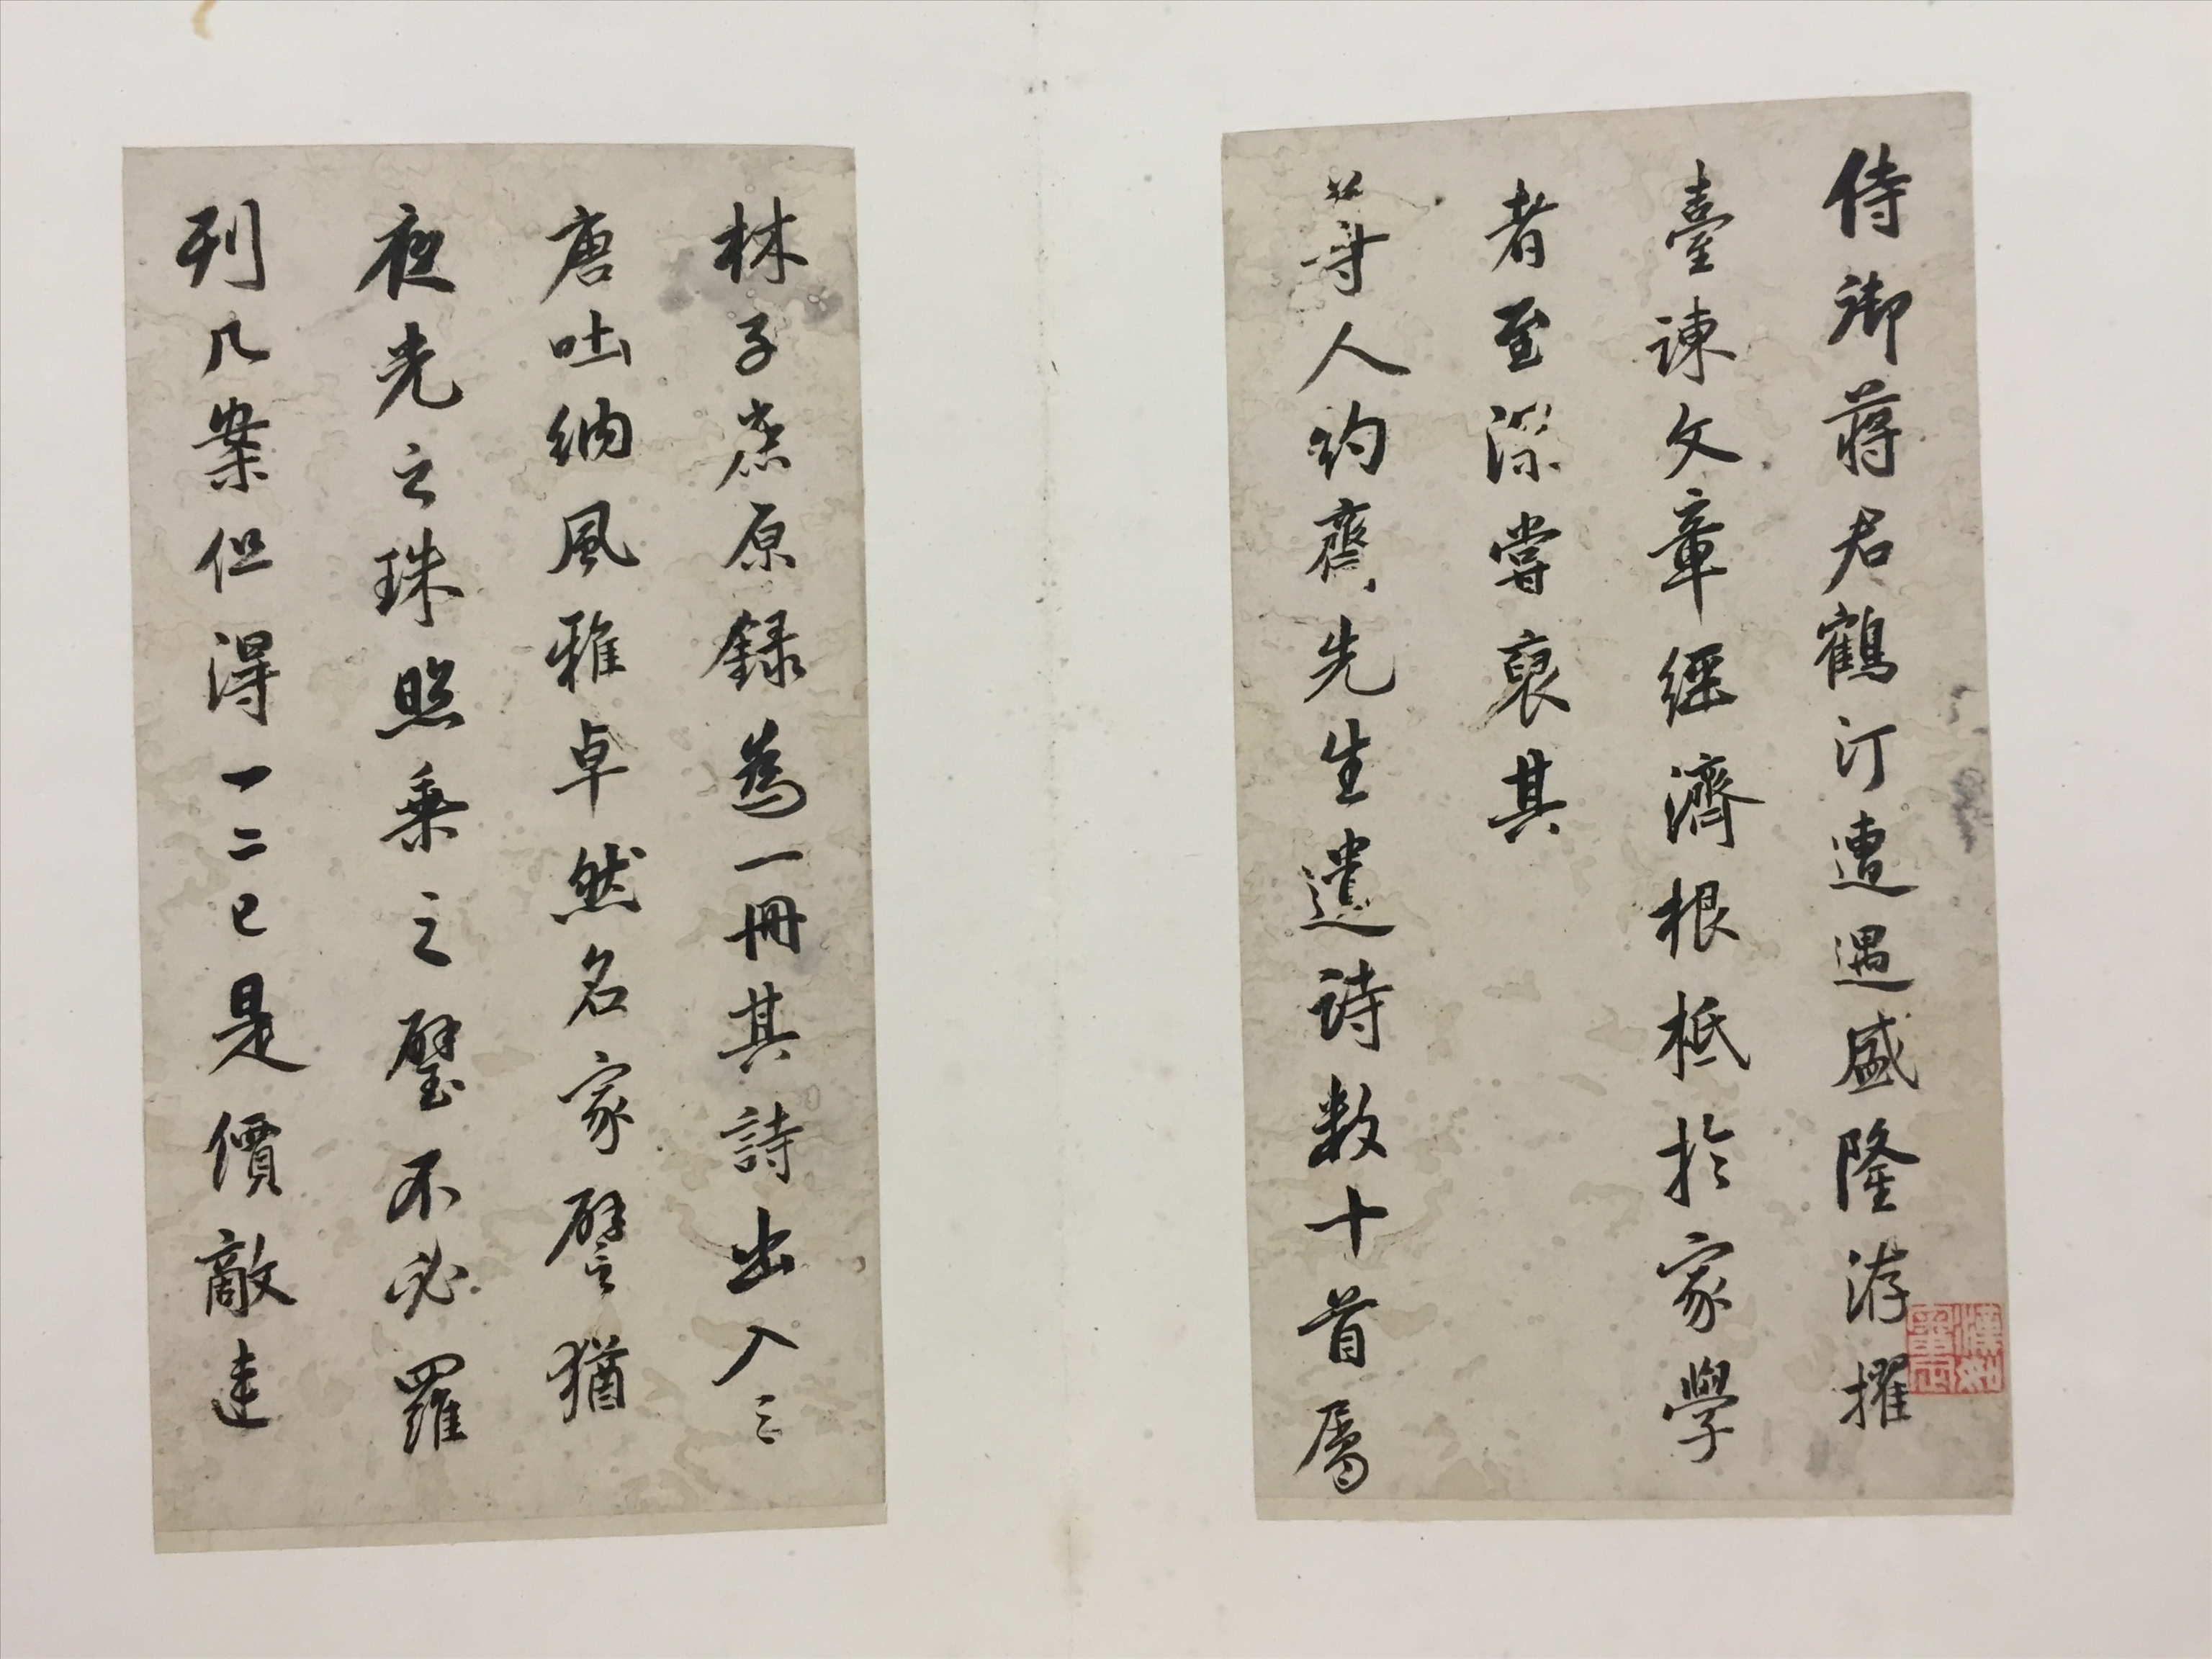 侍御蔣君鶴汀遭遇盛隆洊擢
臺諫文章經濟根柢於家學
者至深嘗裒其
尊人約齋先生遺詩数十首屬
林子蔗原録為一冊其詩出入三
唐吐納風雅卓然名家譬猶
夜光之珠照乘之璧不必羅
列几案但得一二已是價敵連